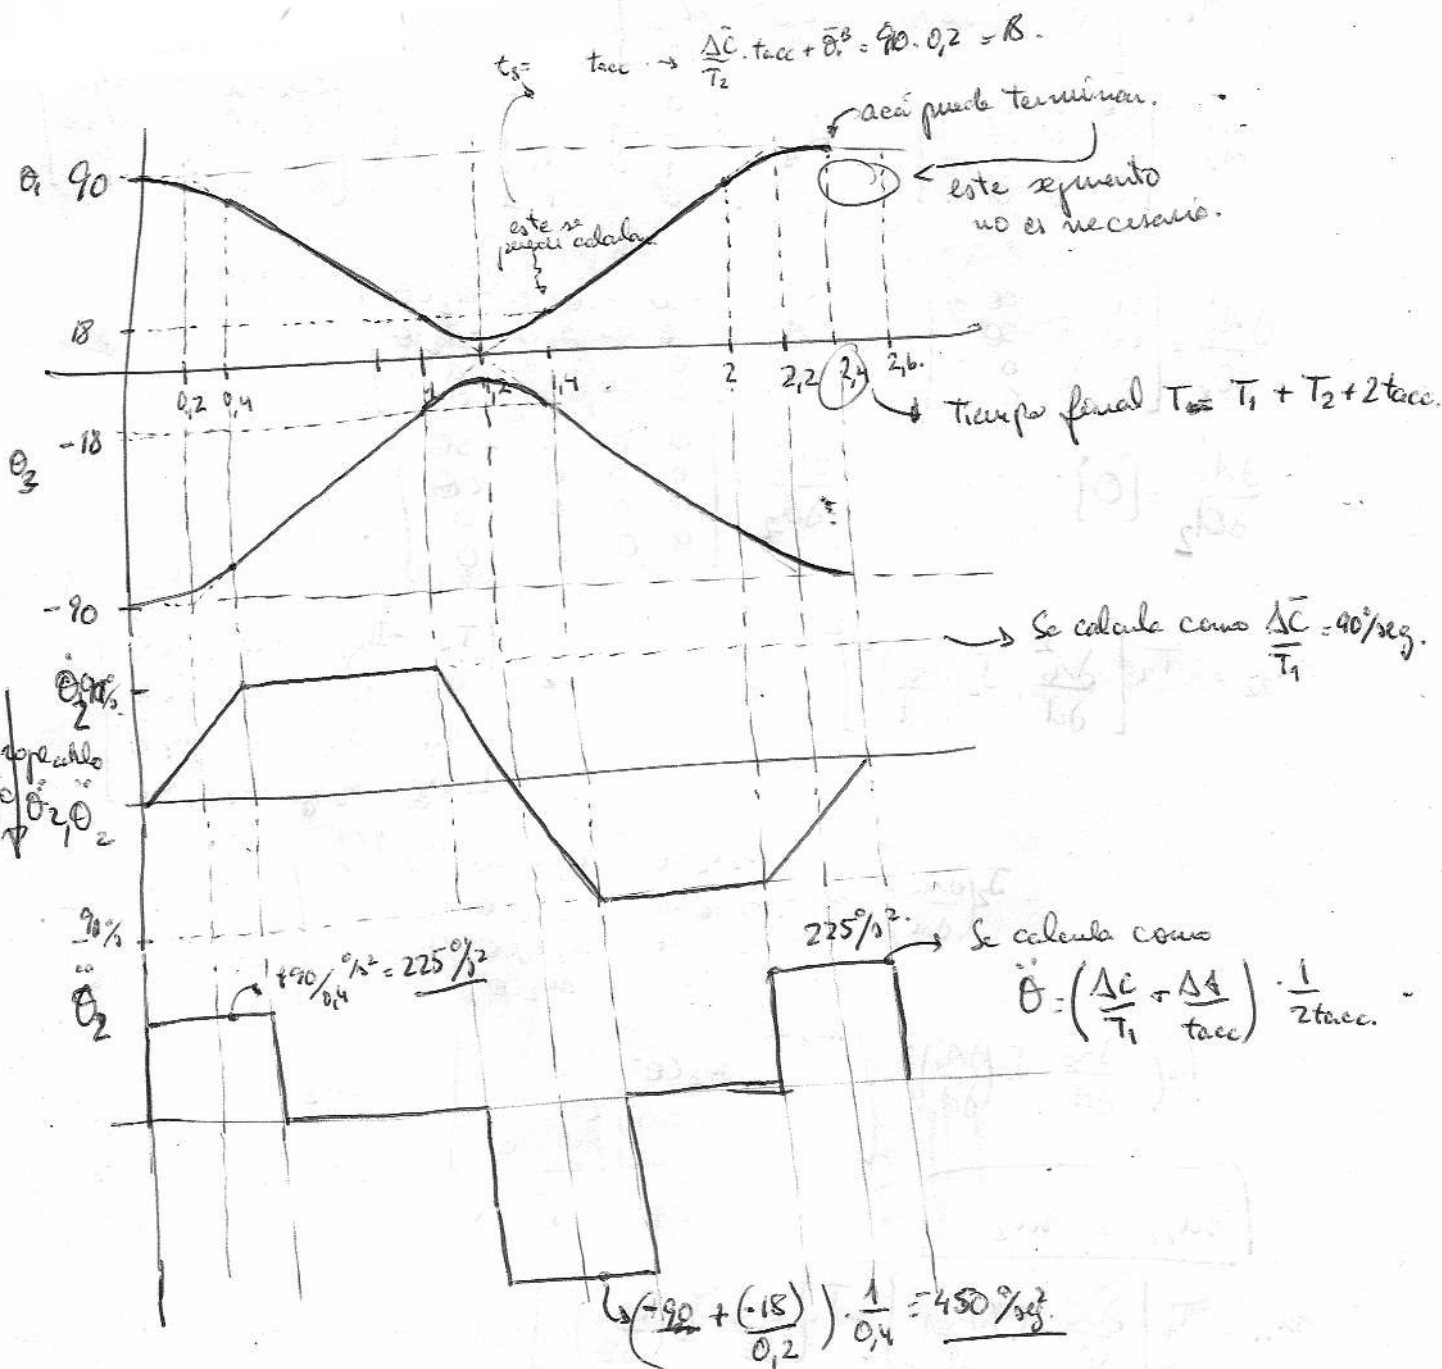 t₃= tacc → ΔC̄/T₂ · tacc + θ̄ᴮ = 90 · 0,2 = 18.
acá puede terminar.
θ₁ 90
este segmento
no es necesario.
este se
puede calcular
18
0,2 0,4 1 1,2 1,4 2 2,2 2,4 2,6.
Tiempo final T = T₁ + T₂ + 2 tacc.
-18
θ₃
-90
Se calcula como ΔC̄/T₁ = 90°/seg.
90°/s
θ̈₂, θ̈₂
-90°/s
225°/s².
Se calcula como
+90/0,4 °/s² = 225°/s²
θ̈₂
θ̈ = (ΔC/T₁ + ΔA/tacc) · 1/2tacc.
(-90 + (-18)/0,2) · 1/0,4 = -450°/seg².